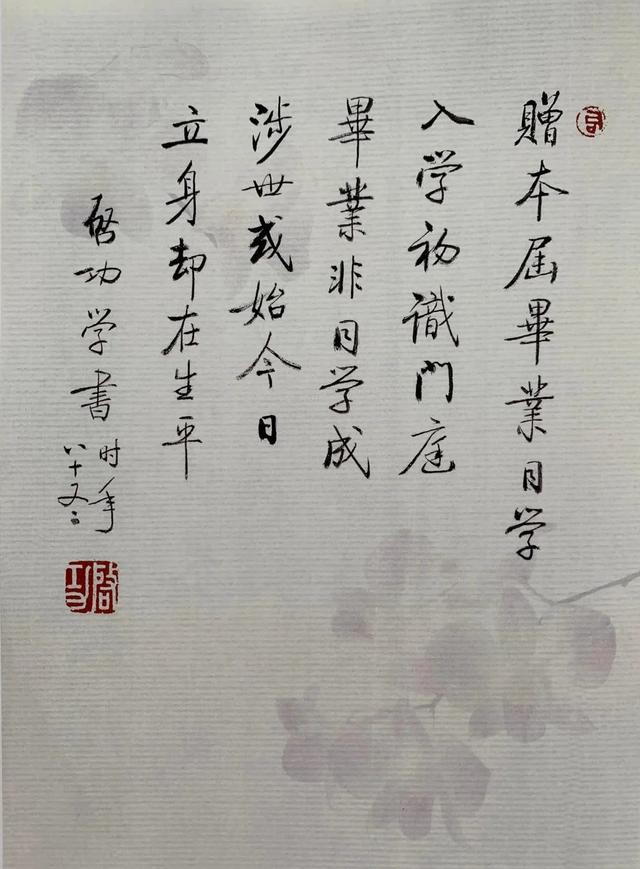 贈本屆畢業同学
入学初識門庭
畢業非同学成
涉世或始今日
立身却在生平
啓功学書
时年
八十又
啓功